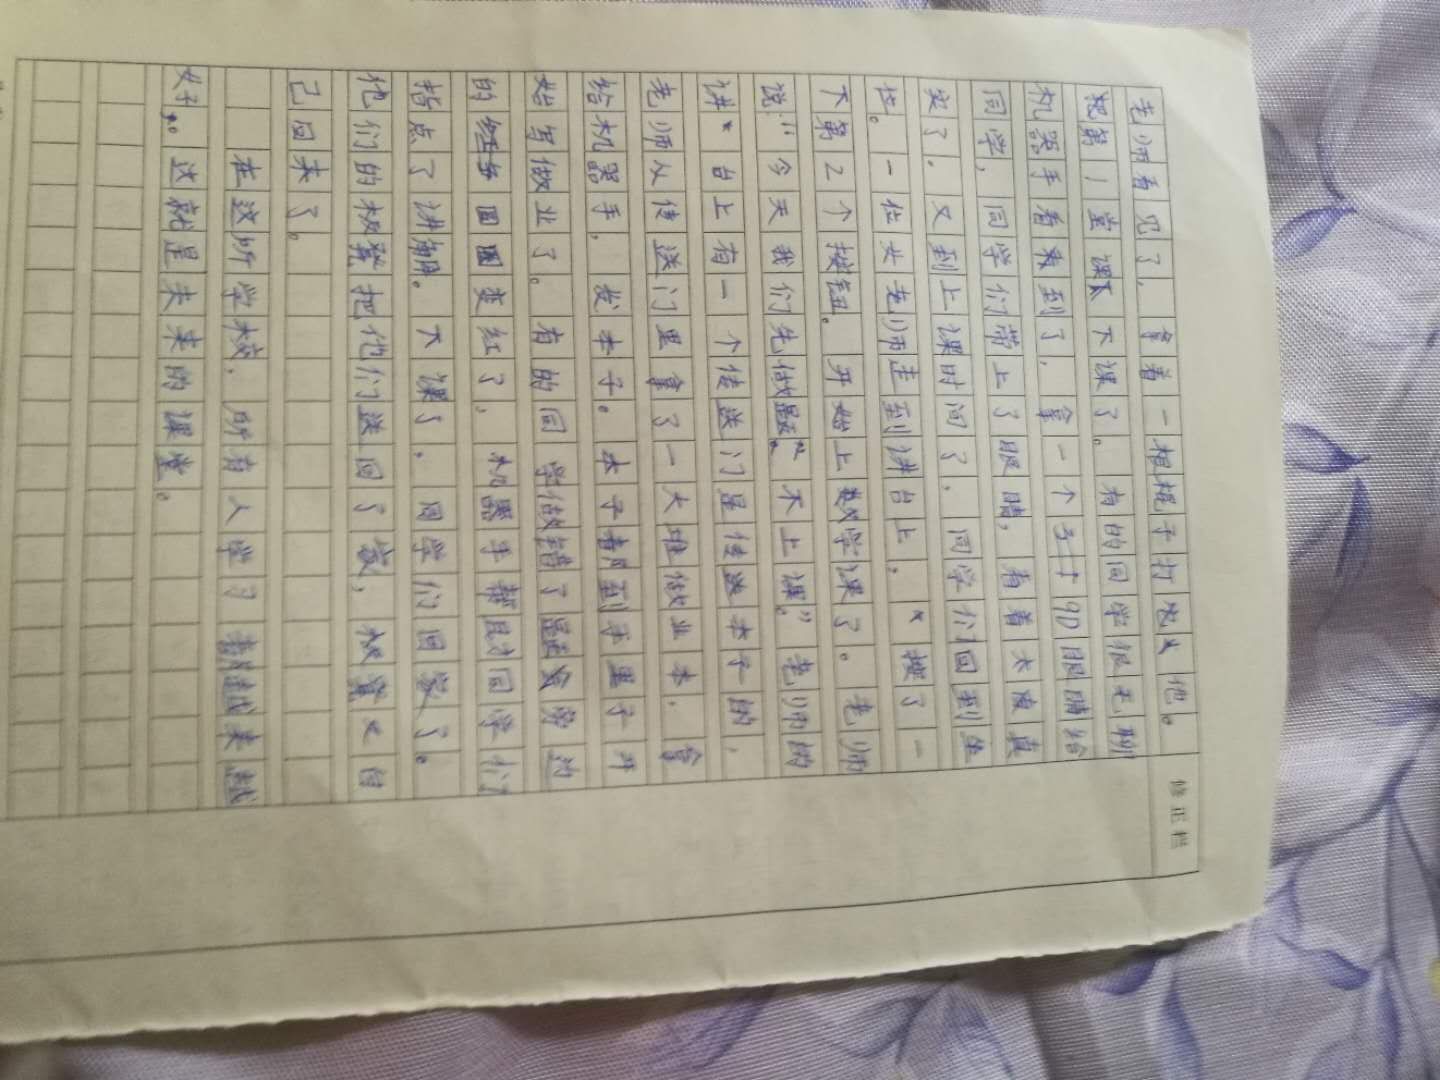 老师看见了，拿着一根棍子打 他。
把第1堂课 下课了。有的同学很无聊
机器手看看到了，拿一个3十9D眼睛给
同学，同学们带上了眼睛，看着太度真
实了。又到上课时间了，同学们回到坐
位。一位 老师走到讲台上，搜了一
下第2个按钮。开始上数学课了。老师
说：“今天我们先做题，不上课。”老师的
讲 台上有一个传送门是传送本子的，
老师从传送门里拿了一大堆做业本，拿
给机器手，发本子。本子都到手里子开
始写做业了。有的同学做错了题 旁边
的 圆圈变红了，机器手帮 同学们
指点了讲解。下课了，同学们回家了。
他们的极凳把他们送回了家，极凳又自
己回来了。
在这所学校，所有人学习都越来越
好，。这就是未来的课堂。
修正栏